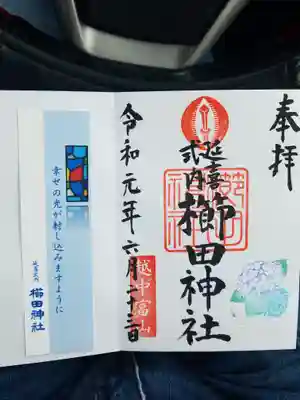 奉拝
延喜
式内
櫛田神社
越中富山
令和元年六月二十三日
幸せの光が射し込みますように
櫛田神社